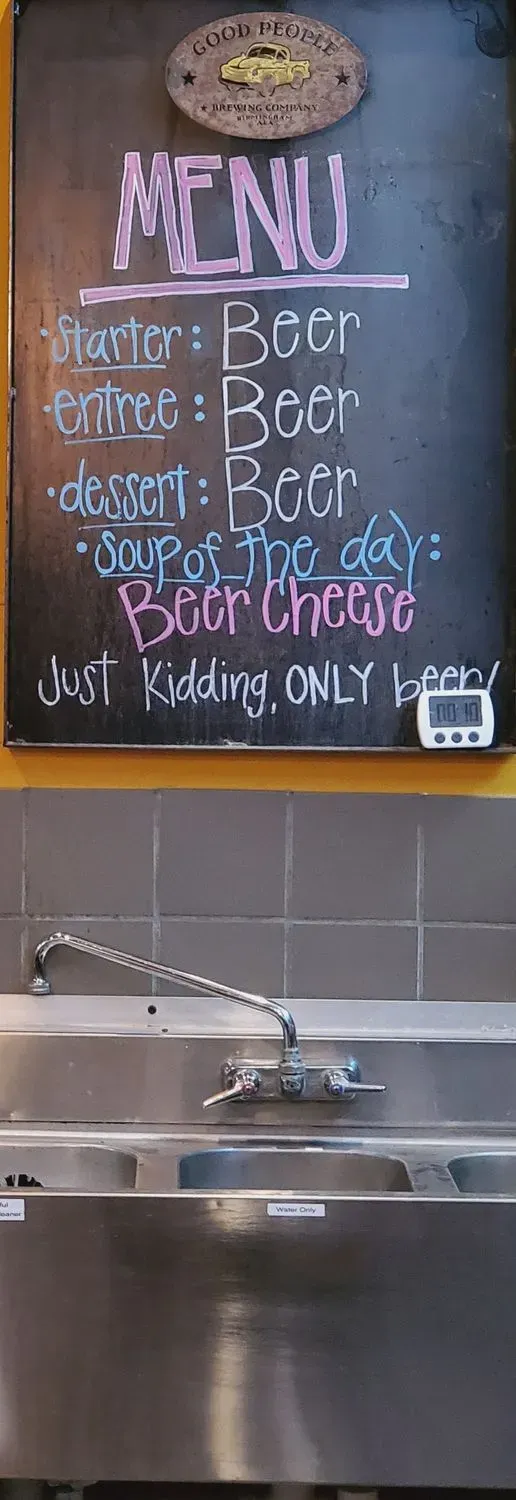 GOOD PEOPLE
BREWING COMPANY
BIRMINGHAM
ALA
MENU
· starter: Beer
· entree: Beer
· dessert: Beer
· soup of the day:
Beer Cheese
Just Kidding, ONLY beer!
Water Only